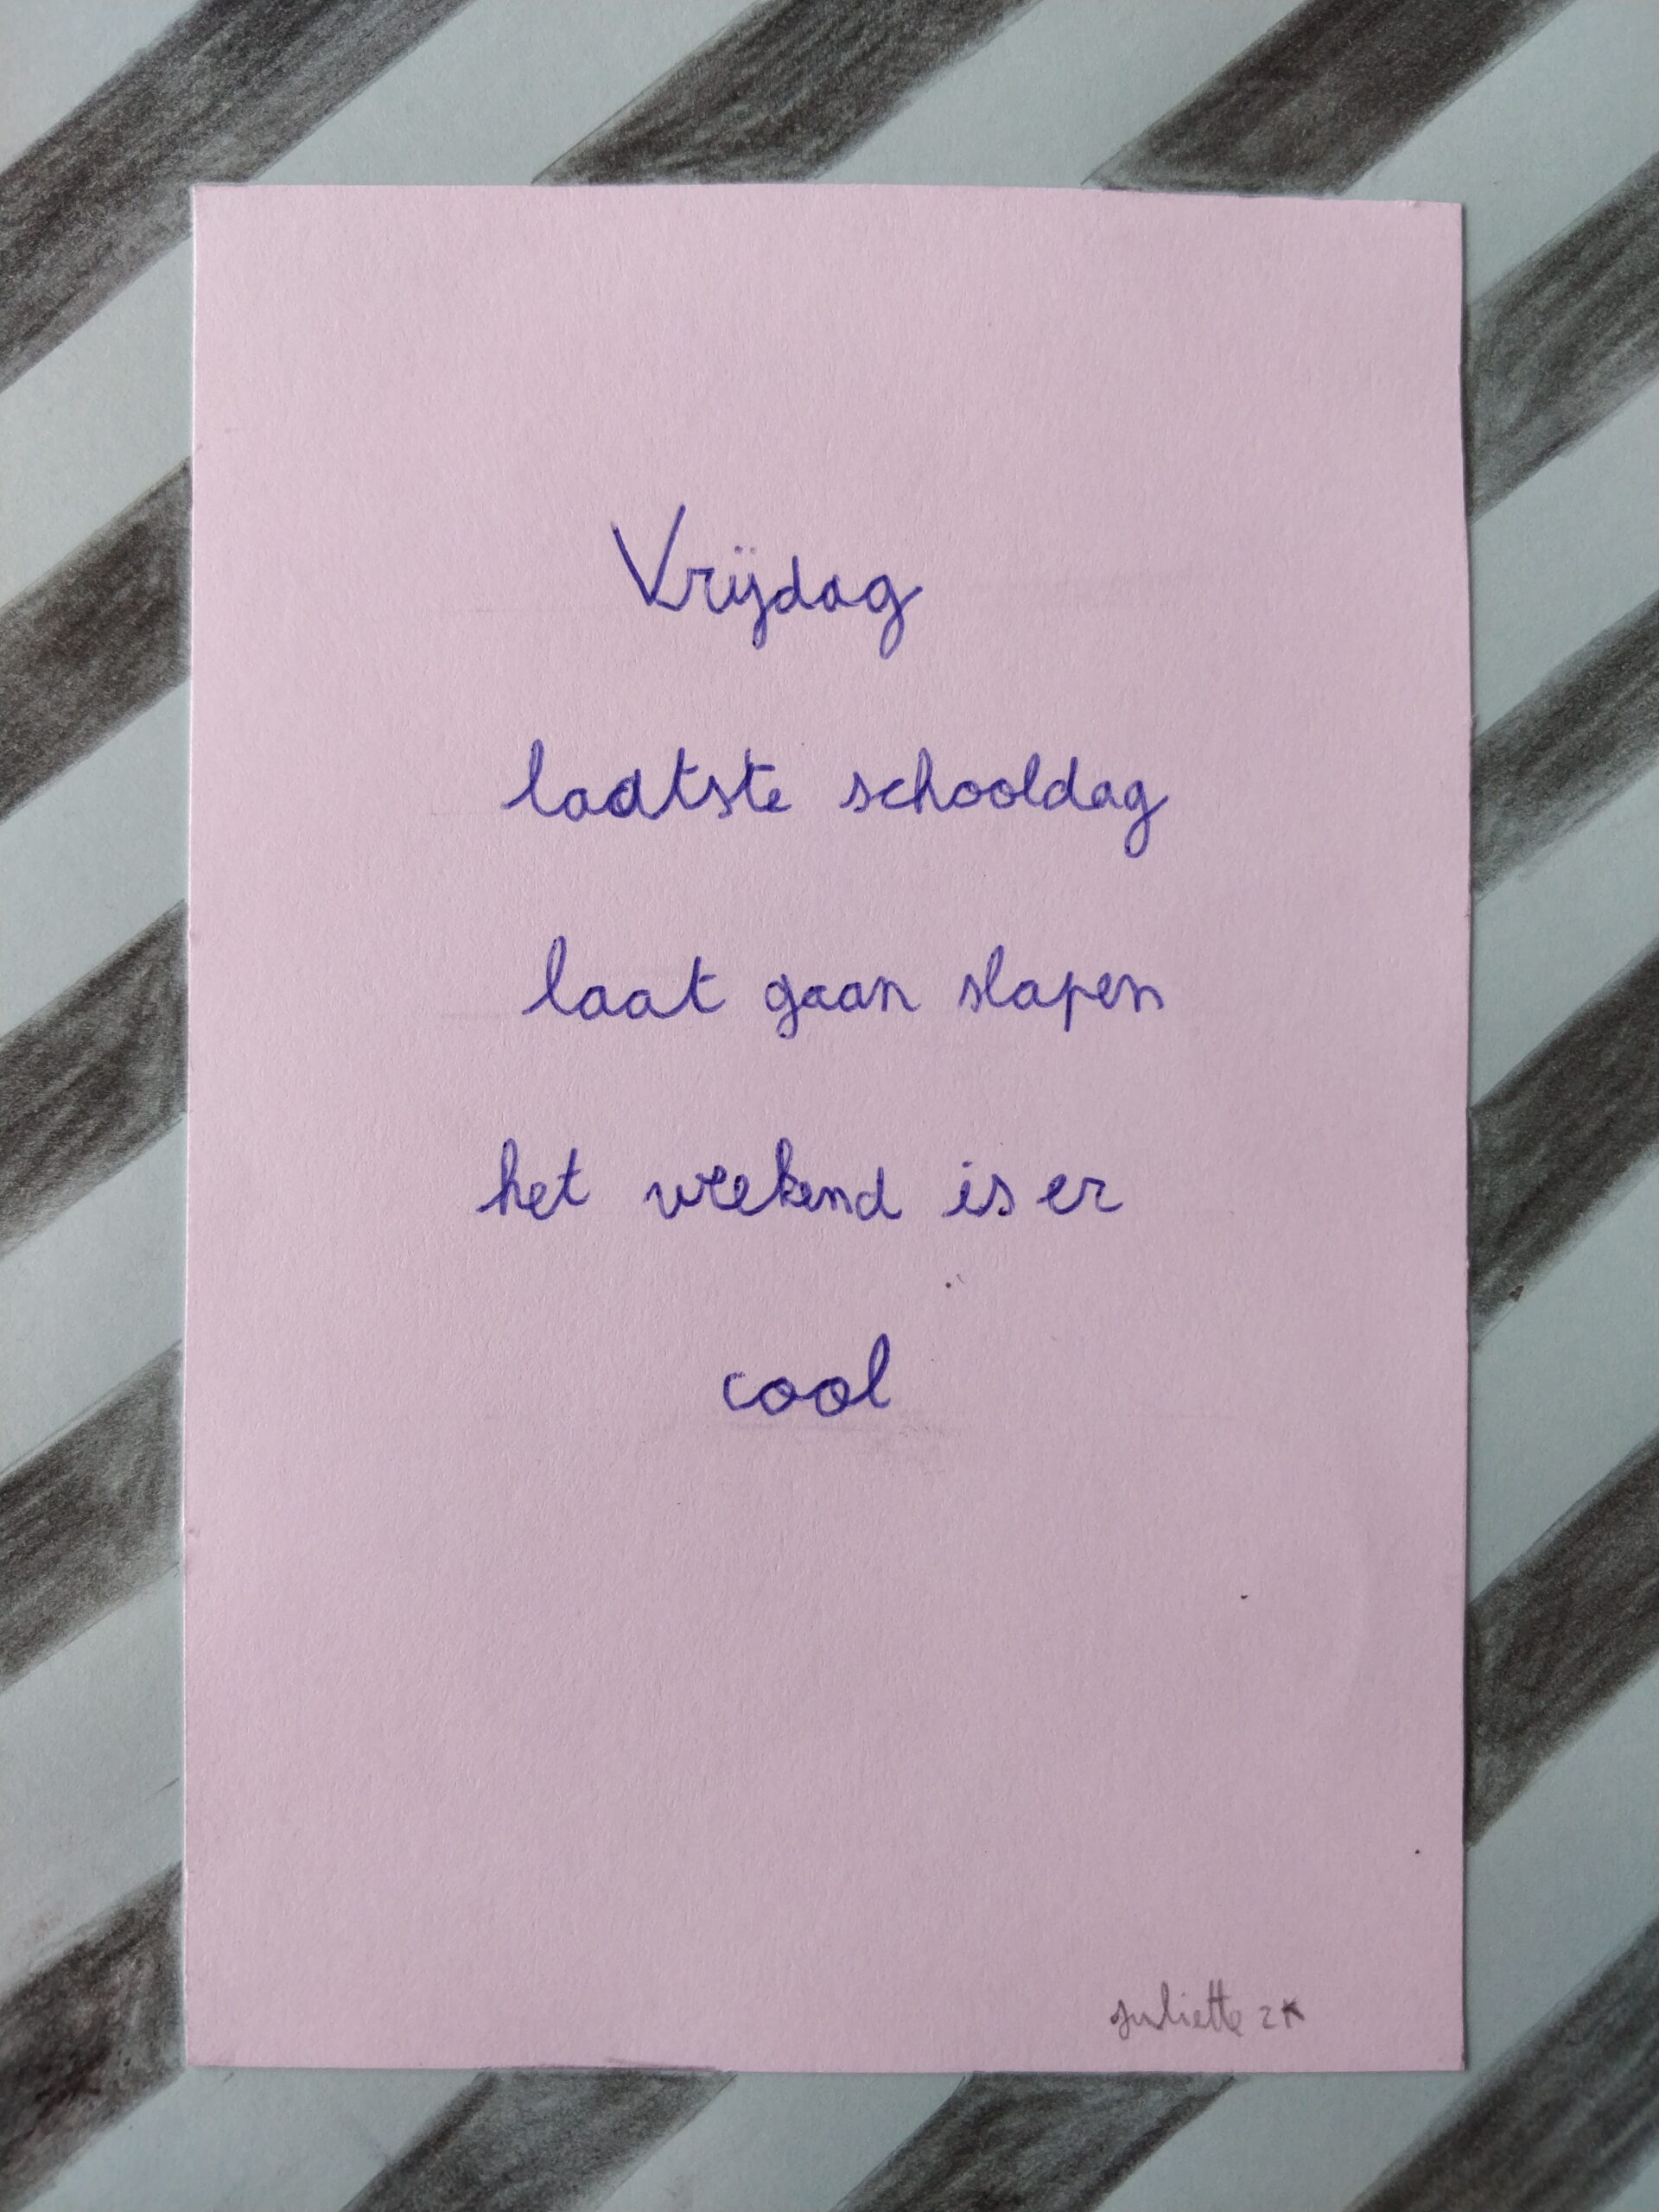 Vrijdag
laatste schooldag
laat gaan slapen
het weekend is er
cool
Juliette 2K